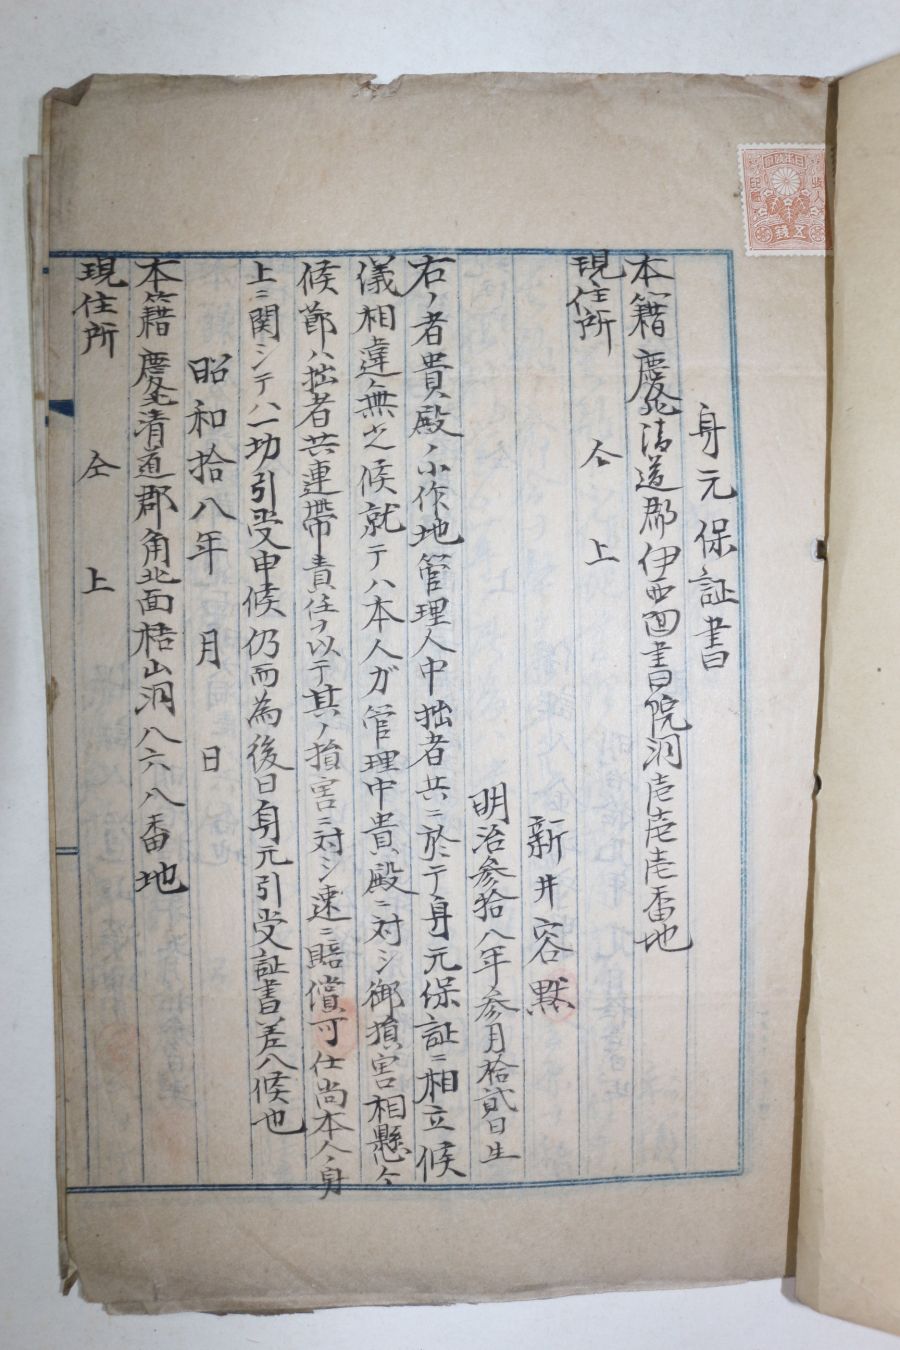 身元保証書
本籍 慶北清道郡伊西面書院洞壱壱壱番地
現住所 仝上
新井容黙
明治参拾八年参月拾貳日生
右ノ者貴殿ノ小作地管理人中拙者共ニ於テ身元保証ニ相立候
儀相違無之候就テハ本人ガ管理中貴殿ニ対シ御損害相懸ケ
候節ハ拙者共連帯責任ヲ以テ其ノ損害ニ対シ速ニ賠償可仕尚本人ノ身
上ニ関シテハ一切引受申候仍而為後日身元引受証書差入候也
昭和拾八年 月 日
本籍 慶北清道郡角北面梧山洞八六八番地
現住所 仝上
五銭